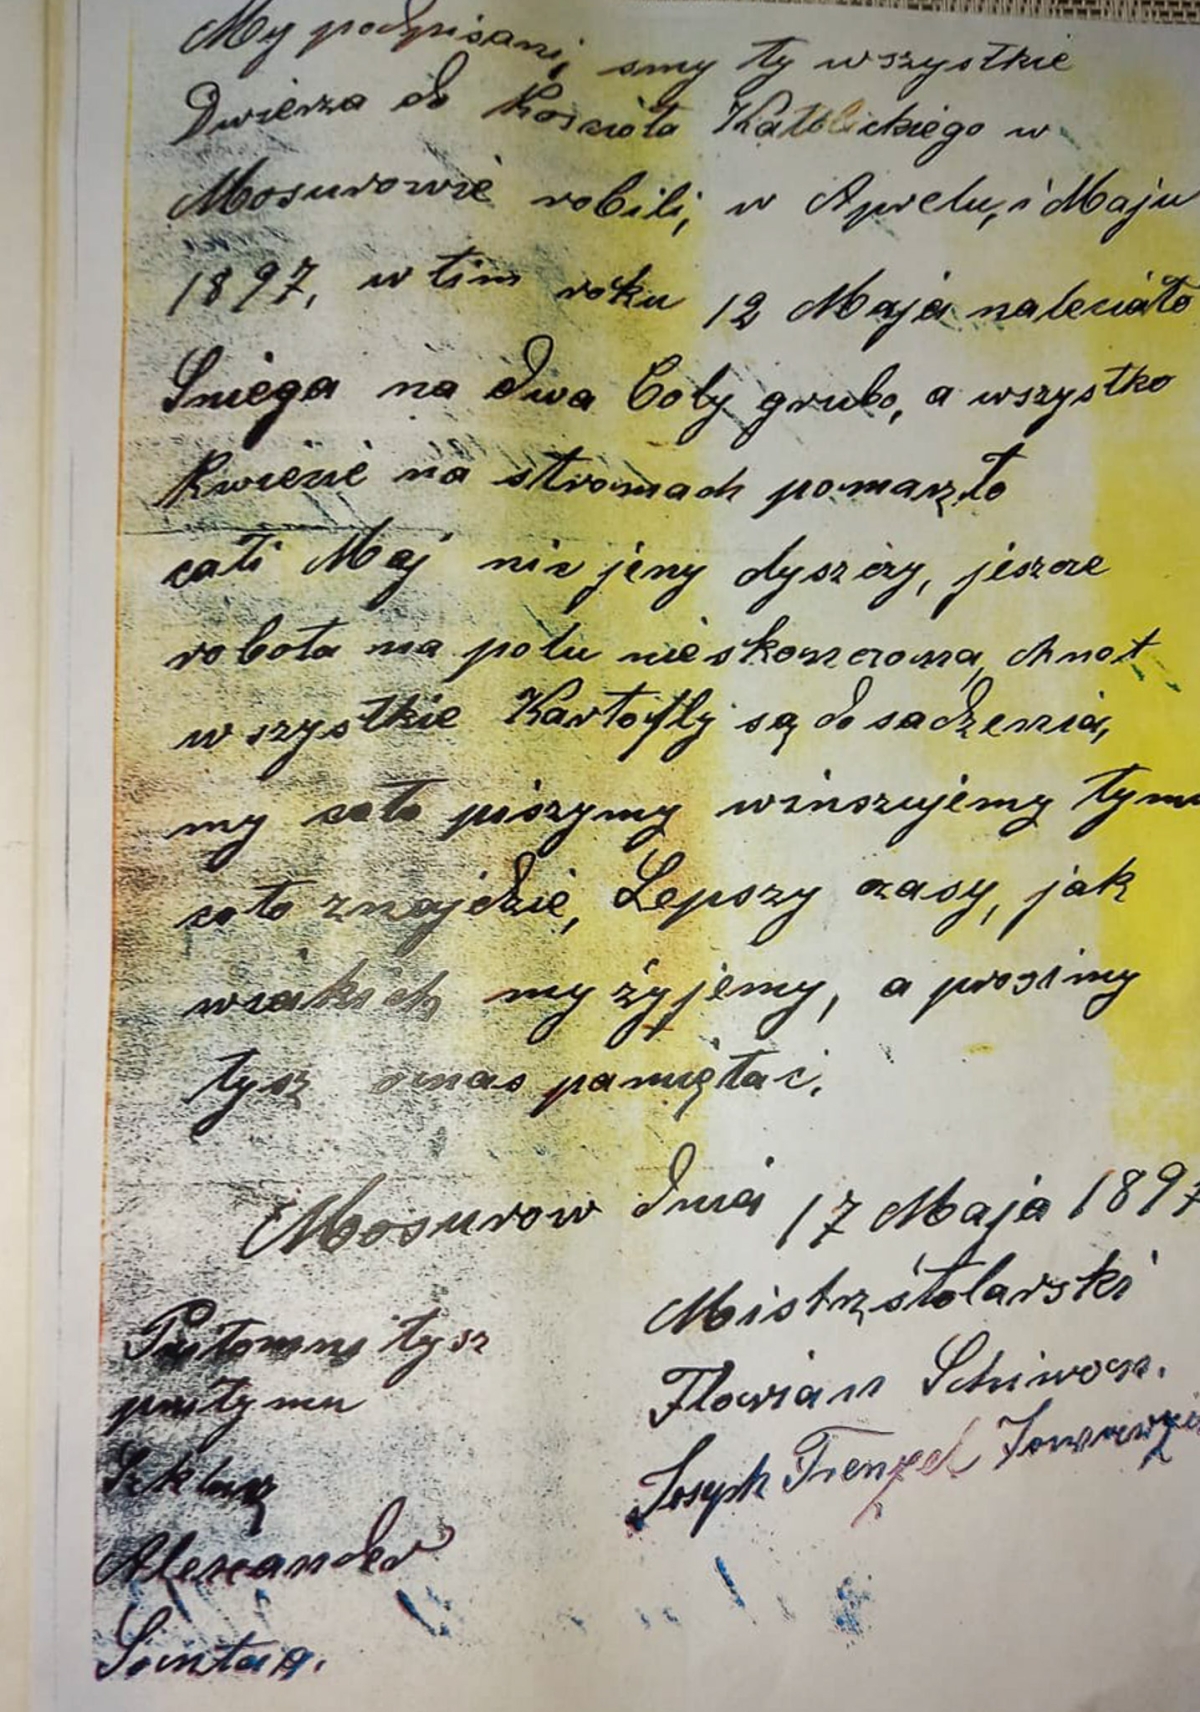 My podpisani, smy ty wszystkie
Dwierza do Kościoła Katolickiego w
Mosurowie robili, w Aprelu, i Maju
1897, w tim roku 12 Maja naleciało
Sniega na dwa Coly grubo, a wszystko
Kwiecie na stromach pomarzło
cali Maj nic jeny dyszczy, jeszcze
robota na polu nieskonczona, chnet
wszystkie Kartofly są do sadzenia,
my coto piszymy winszujemy tymu
coto znajdzie, Lepszy czasy, jak
wiakich my żyjemy, a prosimy
tysz onas pamiętac.
Mosurow dnia 17 Maja 1897
Mistrz stolarski
Florian Schiwon.
Joseph Frenzel Towarzis
Pritomni tysz
pritymu
Szklarz
Alexander
Sontag.